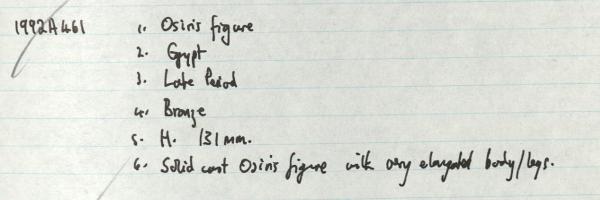 1992A461 1. Osiris figure
2. Egypt
3. Late Period
4. Bronze
5. H. 131mm.
6. Solid cast Osiris figure with very elongated body/legs.